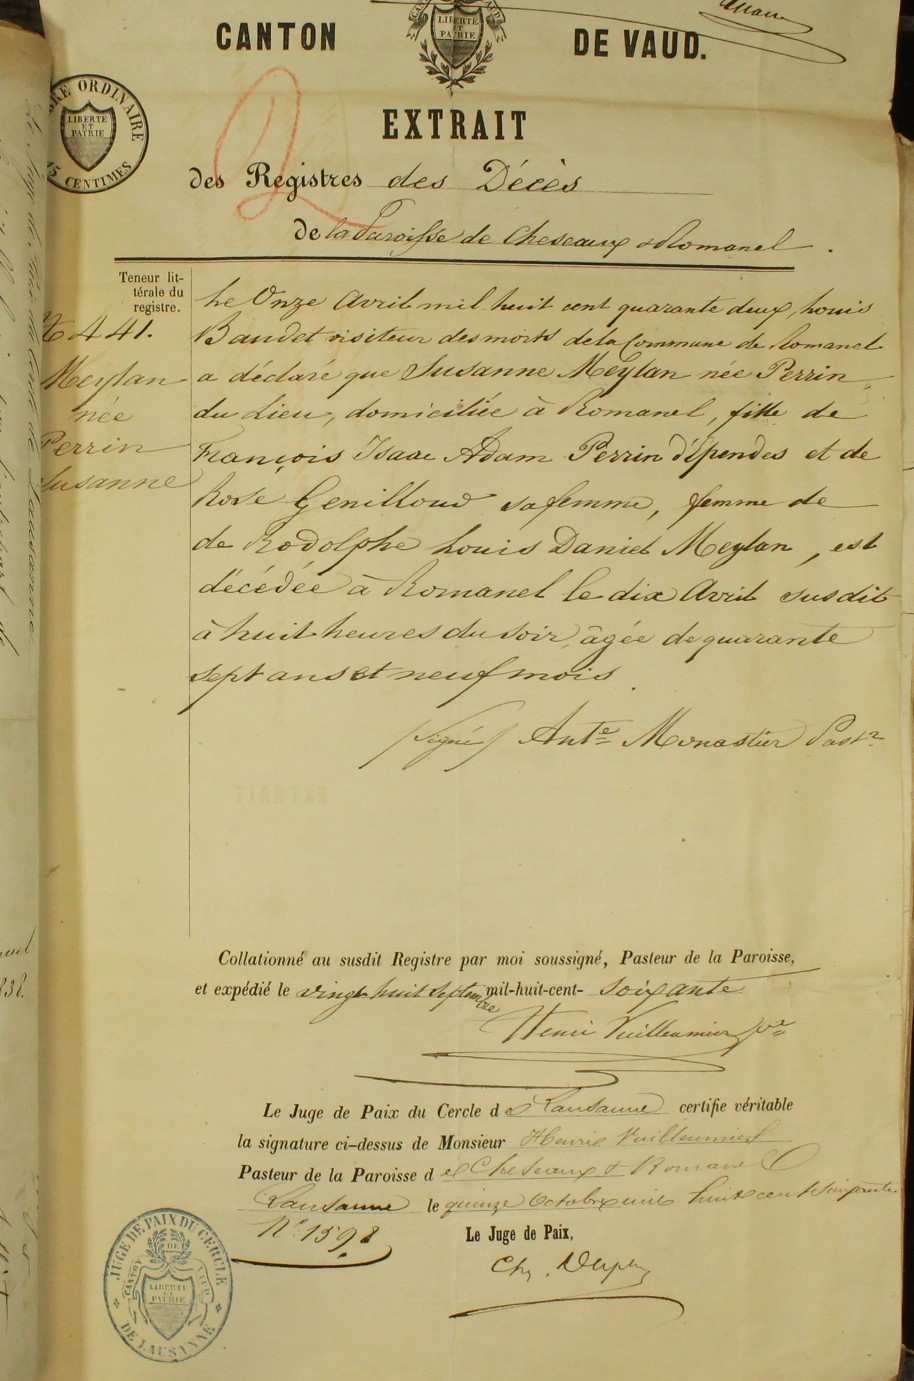 CANTON DE VAUD.
LIBERTÉ ET PATRIE
TIMBRE ORDINAIRE
LIBERTÉ ET PATRIE
15 CENTIMES
EXTRAIT
des Registres des Décès
de la Paroisse de Cheseaux & Romanel.
Teneur littérale du registre.
441.
Meylan
née
Perrin
Susanne
Le Onze Avril mil huit cent quarante deux, Louis
Baudet visiteur des morts de la Commune de Romanel
a déclaré que Susanne Meylan née Perrin,
du Lieu, domiciliée à Romanel, fille de
François Isaac Adam Perrin d'Ependes et de
Rose Genilloud sa femme, femme de
de Rodolphe Louis Daniel Meylan, est
décédée à Romanel le dix Avril susdit
à huit heures du soir, âgée de quarante
sept ans et neuf mois.
(signé) Ante Monastier Past.r
Collationné au susdit Registre par moi soussigné, Pasteur de la Paroisse,
et expédié le vingt huit septembre mil-huit-cent- soixante
Henri Vuilleumier p.r
Le Juge de Paix du Cercle de Lausanne certifie véritable
la signature ci-dessus de Monsieur Henri Vuilleumier
Pasteur de la Paroisse de Cheseaux & Romanel
Lausanne le quinze Octobre mil huit cent soixante
N° 1598
Le Juge de Paix,
JUGE DE PAIX DU CERCLE
CANTON DE VAUD
LIBERTÉ ET PATRIE
DE LAUSANNE